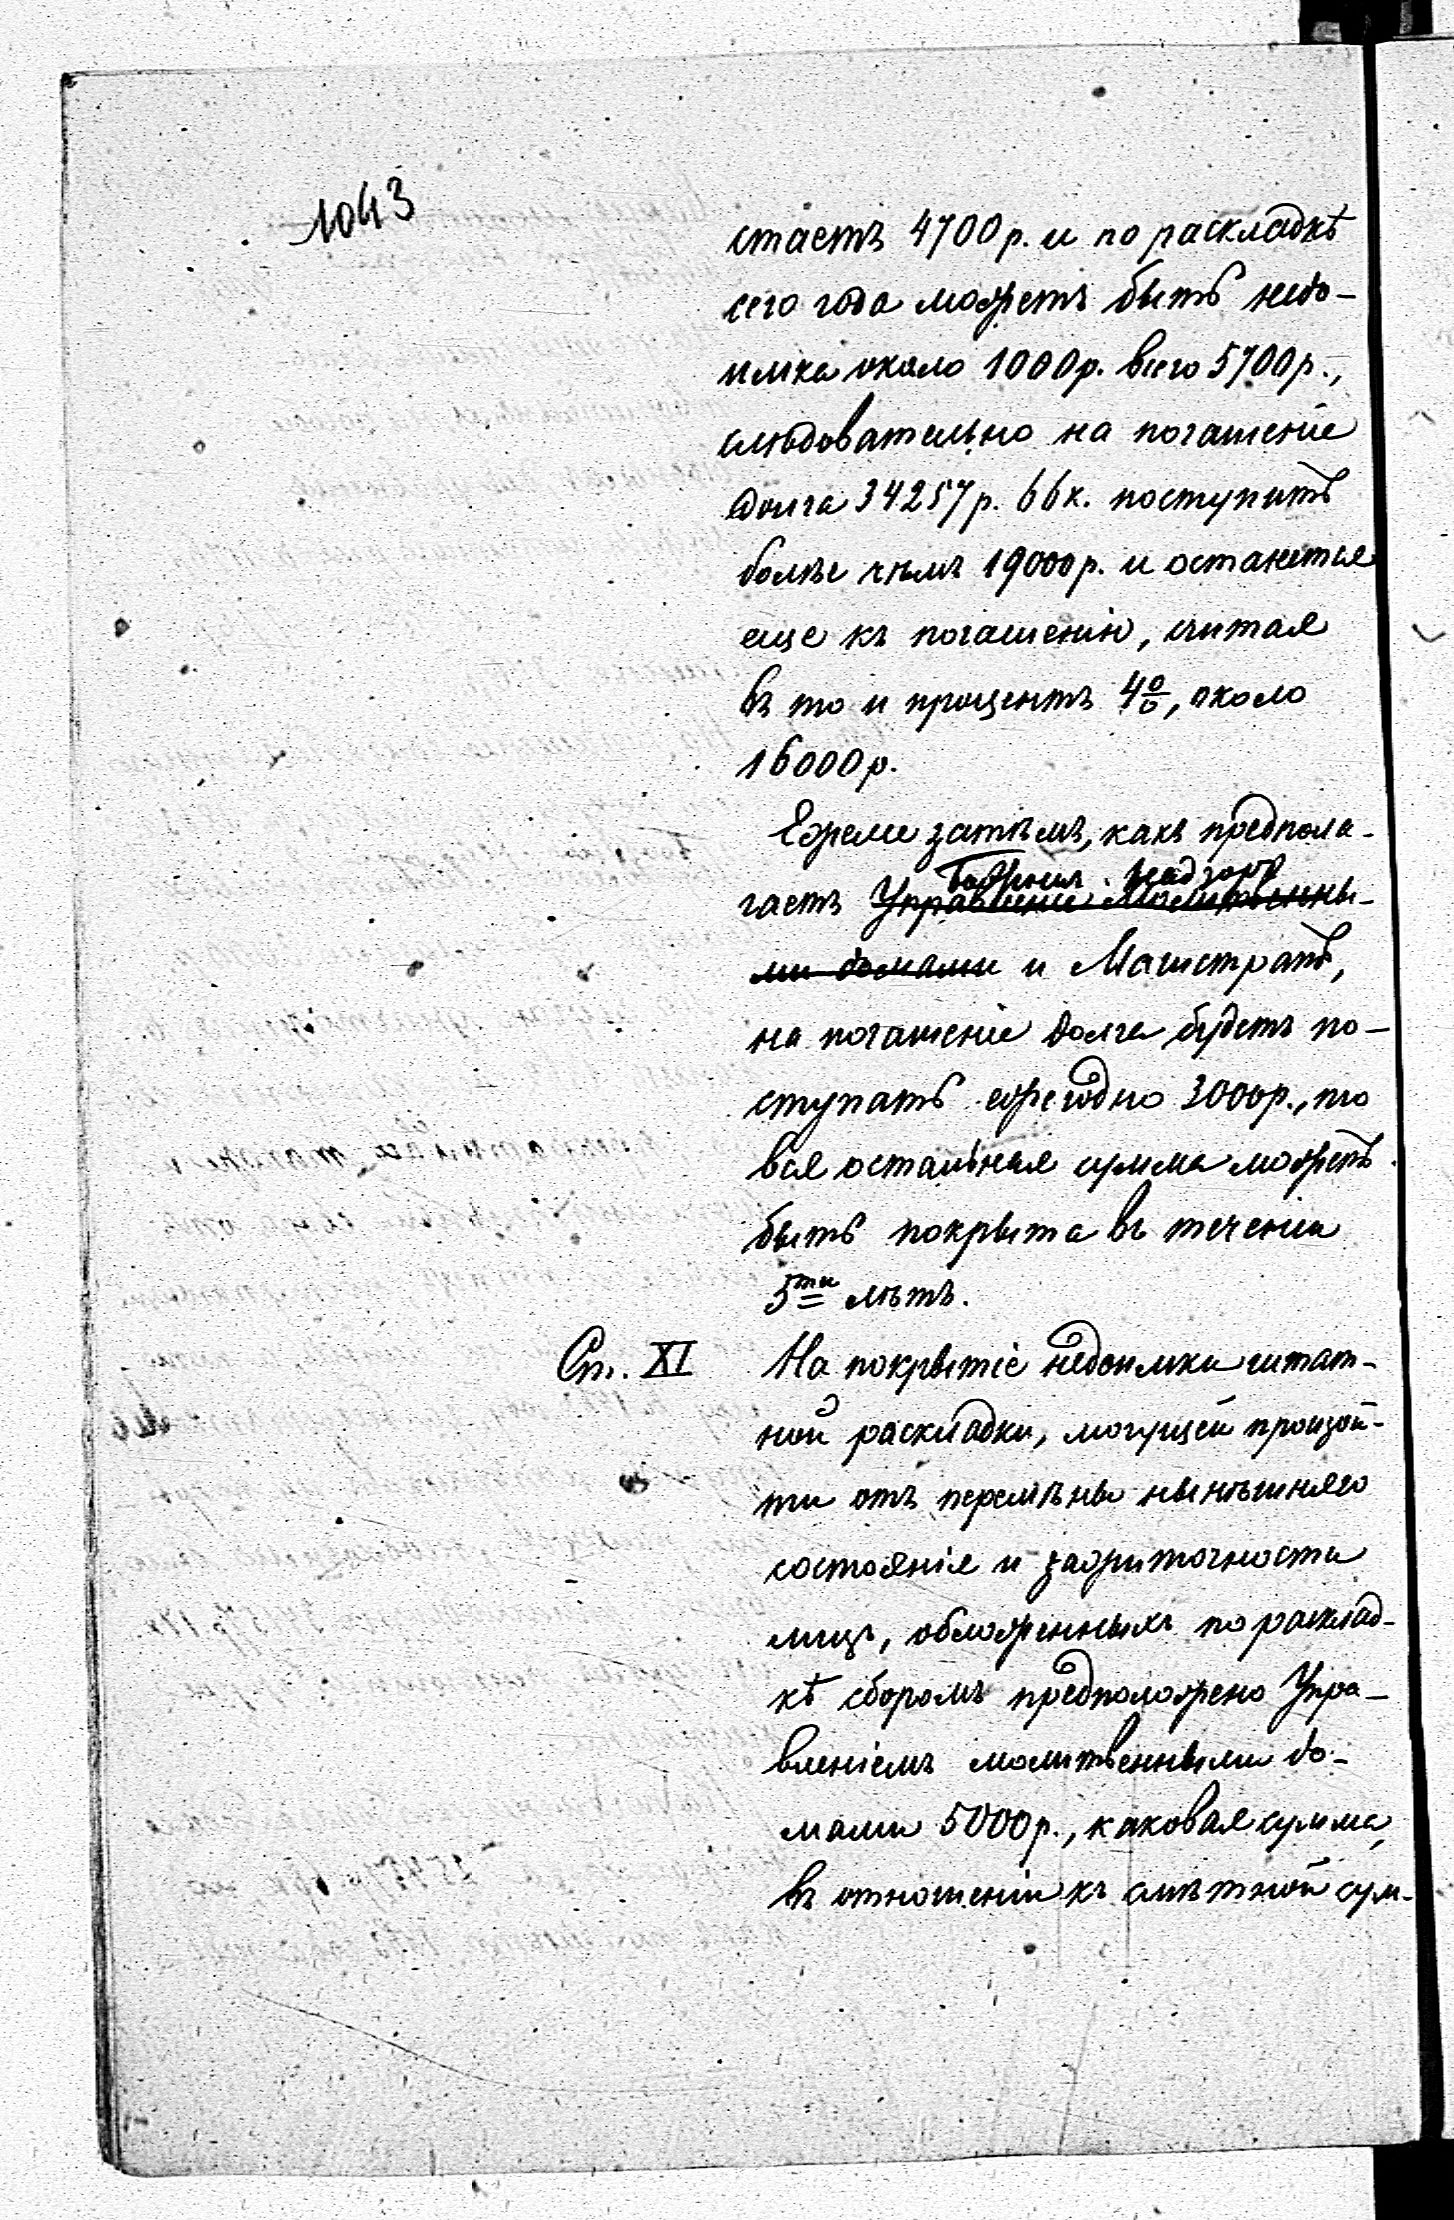 1043
стаетъ 4700 р. и по раскладкѣ
сего года можетъ быть недо-
имка около 1000 р. всего 5700 р.,
слѣдовательно на погашеніе
долга 34257 р. 66 к. поступитъ
болѣе чѣмъ 19000 р. и останется
еще къ погашенію, считая
въ то и процентъ 4%, около
16000 р.
Ежели затѣмъ, какъ предпола-
надзоръ
гаетъ Управленіе Молитвенны-
ми домами и Магистратъ,
на погашеніе долга будетъ по-
ступать ежегодно 3000 р., то
вся остальная сумма можетъ
быть покрыта въ теченіи
5ти лѣтъ.
Ст. XI
На покрытіе недоимки штат-
ной раскладки, могущей произой-
ти отъ перемѣны нынѣшняго
состоянія и зажиточности
лицъ, обложенныхъ по расклад-
кѣ сборомъ предположено Упра-
вленіемъ молитвенными до-
мами 5000 р., каковая сумма,
въ отношеніи къ смѣтной сум-